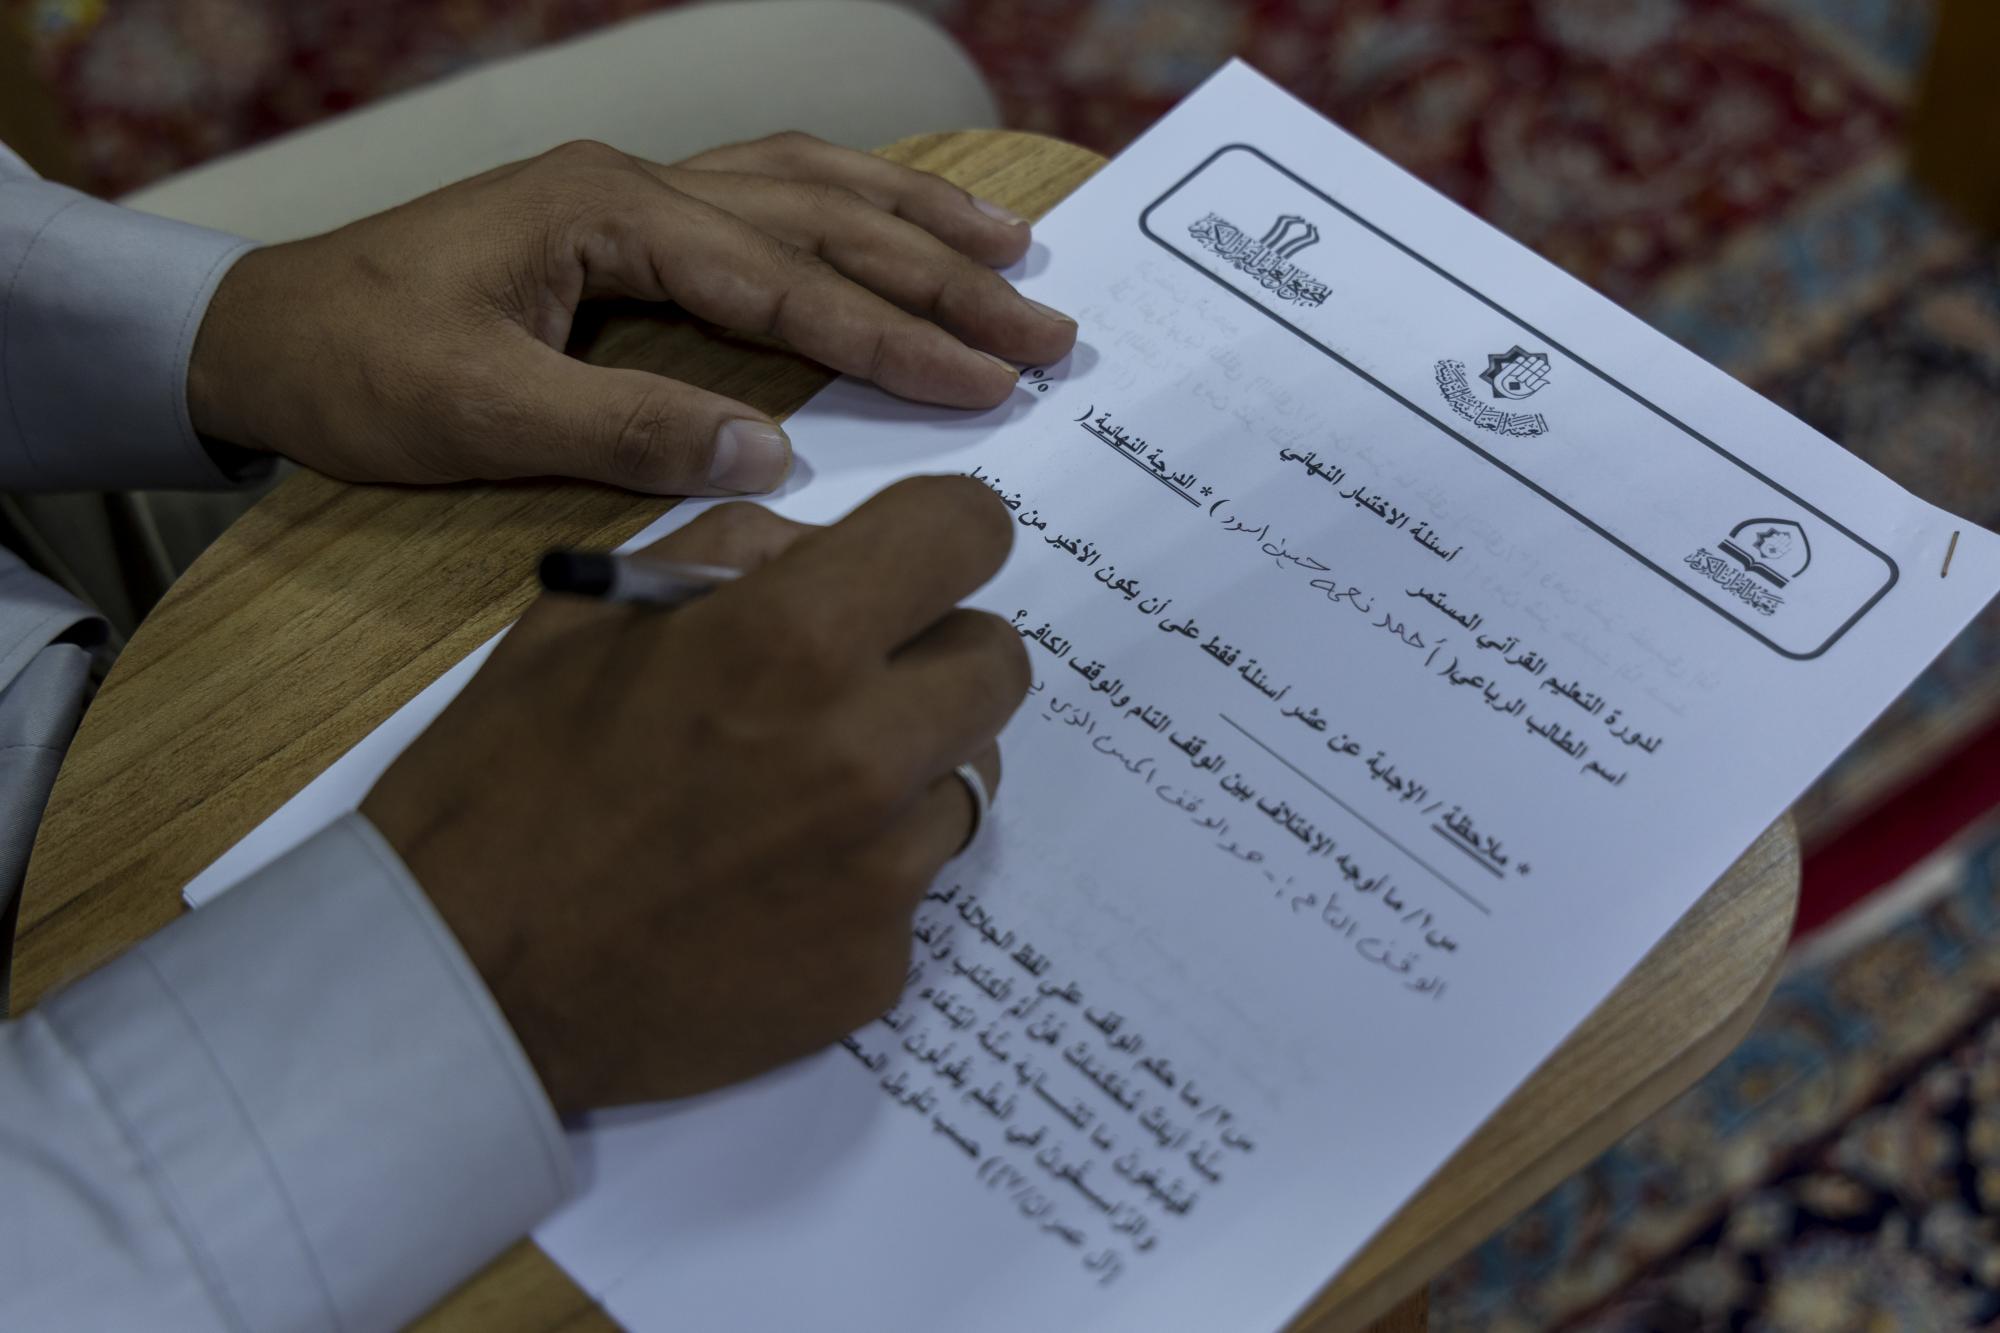 معهد القرآن الكريم
العتبة العباسية المقدسة
المجمع العلمي للقرآن الكريم
أسئلة الاختبار النهائي
لدورة التعليم القرآني المستمر
اسم الطالب الرباعي( أحمد نعمة حسين اسود ) * الدرجة النهائية ( %)
* ملاحظة / الإجابة عن عشر أسئلة فقط على أن يكون الأخير من ضمنها.
س١/ ما أوجه الإختلاف بين الوقف التام والوقف الكافي؟
الوقف التام :- هو الوقف الحسن الذي
س٢/ ما حكم الوقف على لفظ الجلالة في
مِنْهُ آيَاتٌ مُّحْكَمَاتٌ هُنَّ أُمُّ الْكِتَابِ وَأُخَرُ
فَيَتَّبِعُونَ مَا تَشَابَهَ مِنْهُ ابْتِغَاءَ
وَالرَّاسِخُونَ فِي الْعِلْمِ يَقُولُونَ
آل عمران/٧)) حسب تأويل